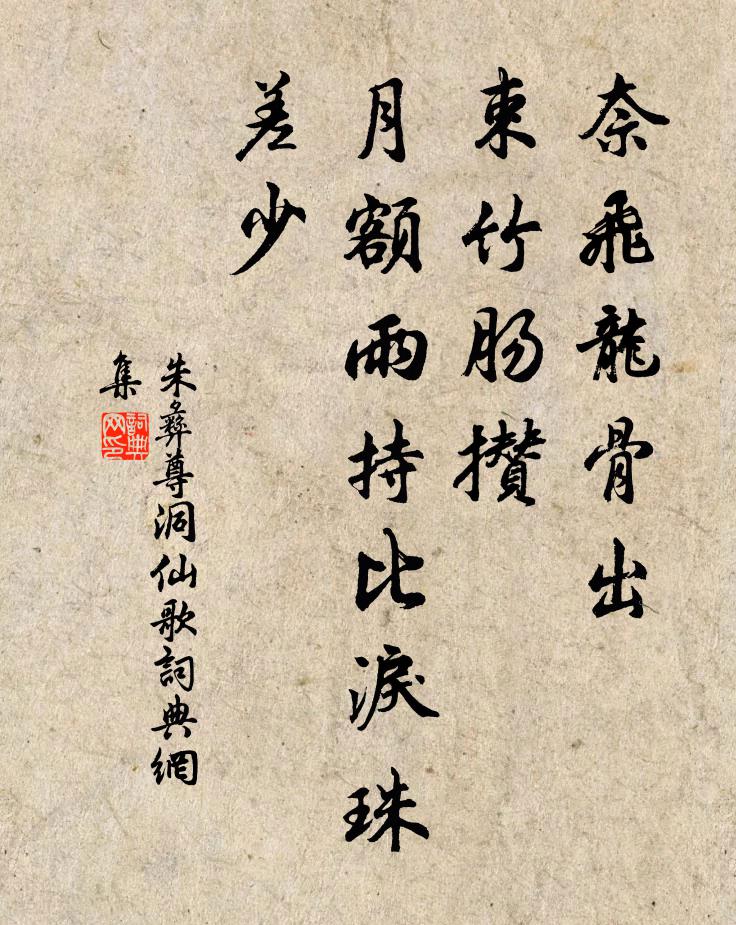 奈飛龍骨出
束竹肠攅
月額雨持比淚珠
差少
朱彝尊洞仙歌詞典網
集
詞典
网印